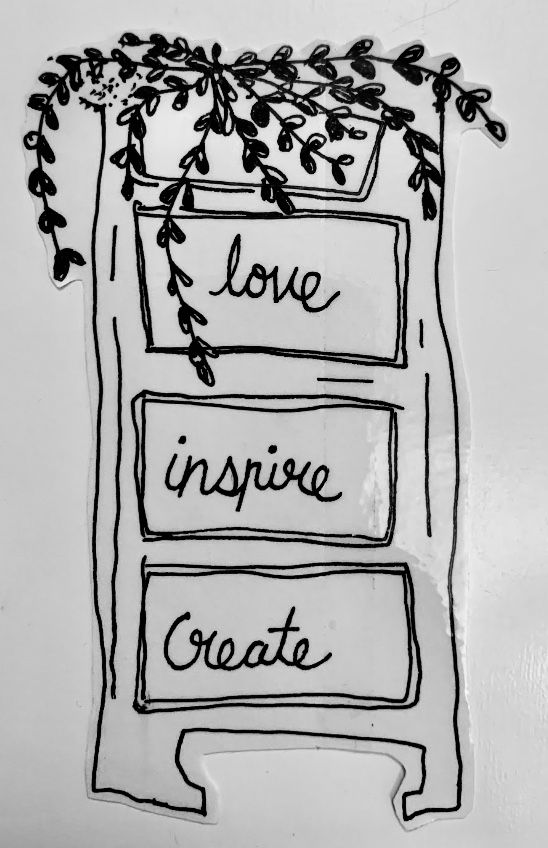 love
inspire
Create